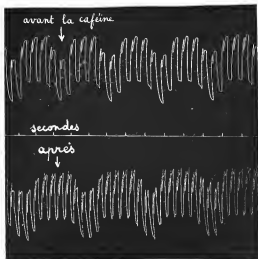 avant la caféine
secondes
après